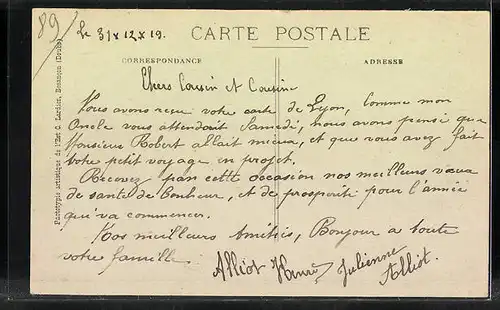 89
Le 31 x 12 x 19.
CARTE POSTALE
CORRESPONDANCE
ADRESSE
Chers Cousin et Cousine
Vous avons reçu votre carte de Lyon, comme mon
Oncle vous attendait Samedi, nous avons pensé que
Monsieur Robert allait mieux, et que vous avez fait
votre petit voyage en projet.
Recevez par cette occasion nos meilleurs vœux
de santé de bonheur, et de prospérité pour l'année
qu'va commencer.
Nos meilleurs Amitiés, Bonjour a toute
votre famille.
Alliot Henri Julienne
Alliot.
Phototypie artistique de l'Est C. Lardier, Besançon (Doubs)